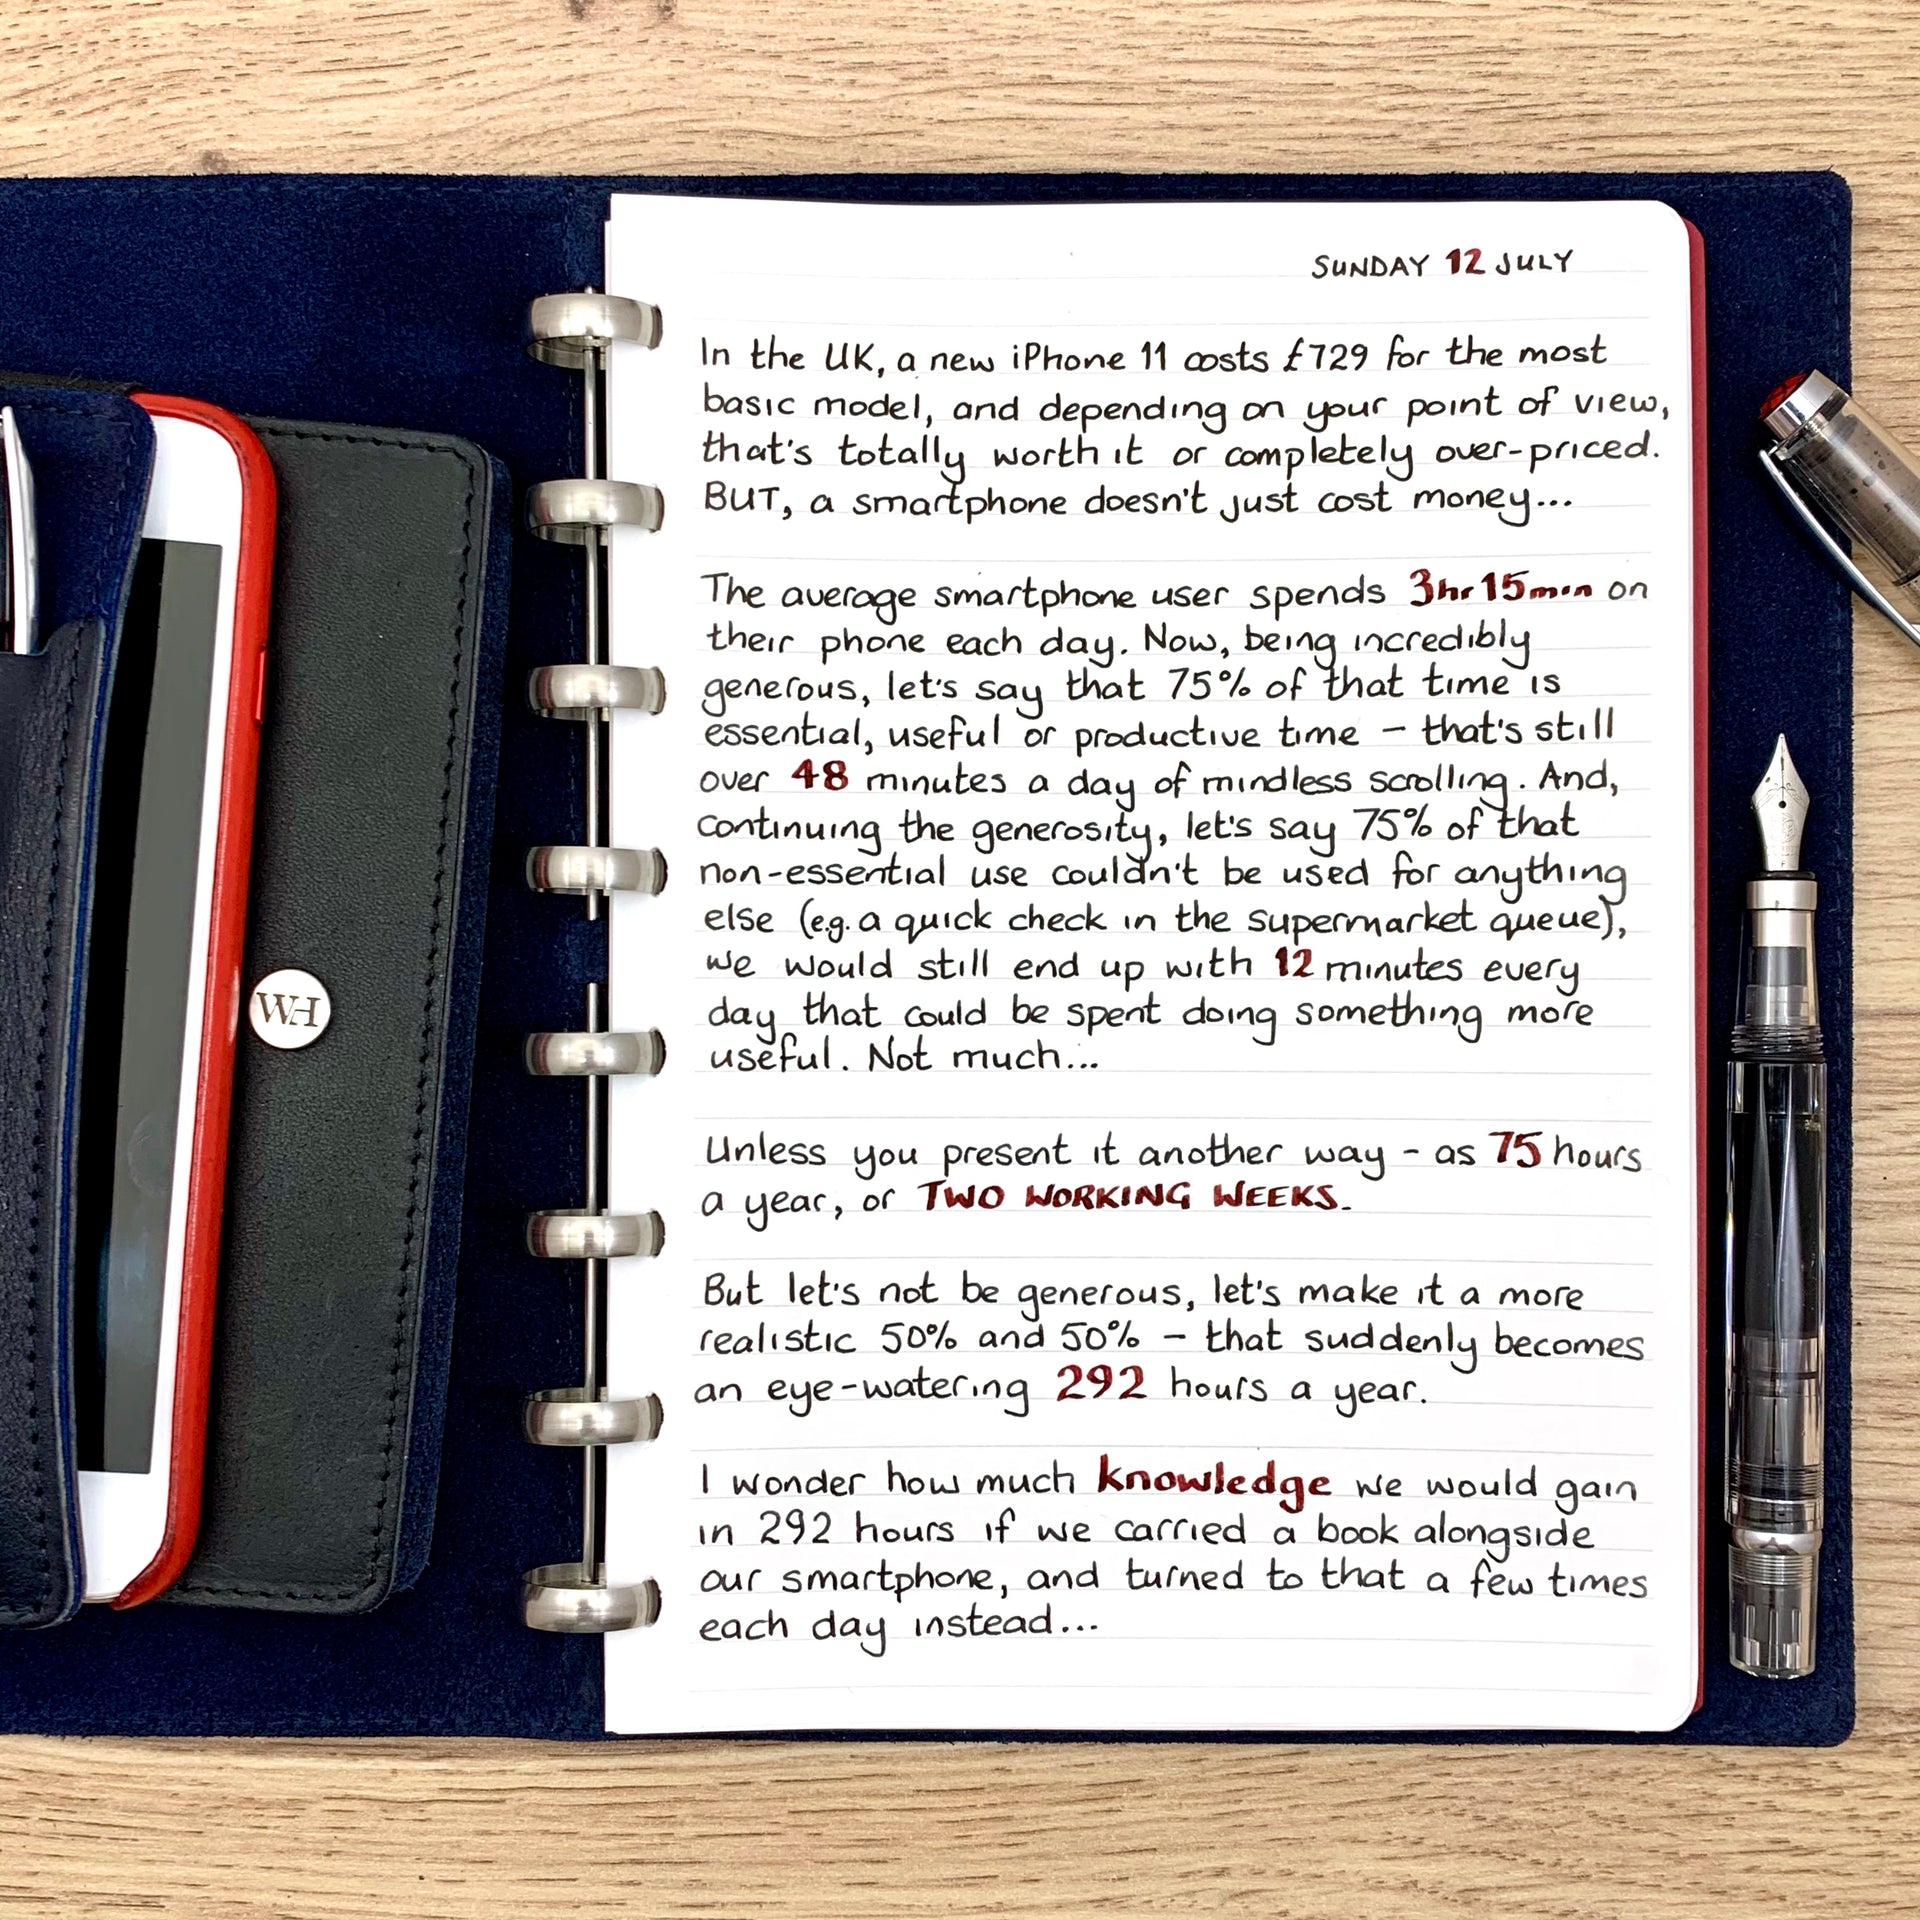 SUNDAY 12 JULY
In the UK, a new iPhone 11 costs £729 for the most
basic model, and depending on your point of view,
that's totally worth it or completely over-priced.
BUT, a smartphone doesn't just cost money...
The average smartphone user spends 3hr 15min on
their phone each day. Now, being incredibly
generous, let's say that 75% of that time is
essential, useful or productive time – that's still
over 48 minutes a day of mindless scrolling. And,
continuing the generosity, let's say 75% of that
non-essential use couldn't be used for anything
else (e.g. a quick check in the supermarket queue),
we would still end up with 12 minutes every
day that could be spent doing something more
useful. Not much...
Unless you present it another way - as 75 hours
a year, or TWO WORKING WEEKS.
But let's not be generous, let's make it a more
realistic 50% and 50% – that suddenly becomes
an eye-watering 292 hours a year.
I wonder how much knowledge we would gain
in 292 hours if we carried a book alongside
our smartphone, and turned to that a few times
each day instead...
WH